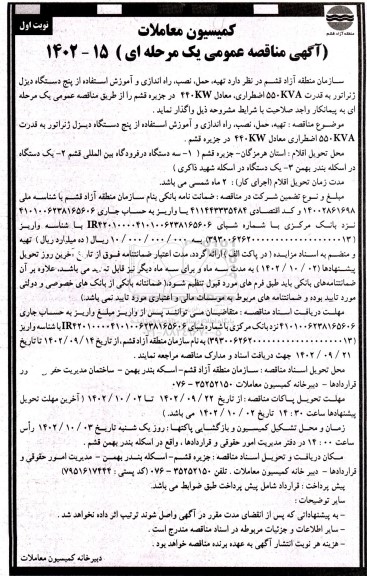 منطقه آزاد قشم
نوبت اول
کمیسیون معاملات
(آگهی مناقصه عمومی یک مرحله ای ) ۱۵ - ۱۴۰۲
سازمان منطقه آزاد قشم در نظر دارد تهیه، حمل، نصب، راه اندازی و آموزش استفاده از پنج دستگاه دیزل
ژنراتور به قدرت ۵۵۰KVA اضطراری، معادل ۴۴۰KW در جزیره قشم را از طریق مناقصه عمومی یک مرحله
ای به پیمانکار واجد صلاحیت با شرایط مشروحه ذیل واگذار نماید .
موضوع مناقصه : تهیه، حمل، نصب، راه اندازی و آموزش استفاده از پنج دستگاه دیزل ژنراتور به قدرت
۵۵۰KVA اضطراری معادل ۴۴۰KW در جزیره قشم .
محل تحویل اقلام : استان هرمزگان- جزیره قشم ( ۱- سه دستگاه درفرودگاه بین المللی قشم ۲- یک دستگاه
در اسکله بندر بهمن ۳- یک دستگاه در اسکله شهید ذاکری )
مدت زمان تحویل اقلام (اجرای کار) : ۲ ماه شمسی می باشد.
مبلغ و نوع تضمین شرکت در مناقصه : ضمانت نامه بانکی بنام سازمان منطقه آزاد قشم با شناسه ملی
۱۴۰۰۲۸۶۱۶۹۸ و کد اقتصادی ۴۱۱۴۴۳۳۳۵۴۸۴ یا واریز به حساب جاری ۴۱۰۱۰۰۶۲۳۸۱۶۵۶۰۶
نزد بانک مرکزی با شماره شبای IR۴۲۰۱۰۰۰۰۴۱۰۱۰۰۶۲۳۸۱۶۵۶۰۶ با شناسه واریز
به ۱۰/۰۰۰/۰۰۰/۰۰۰ ریال (ده میلیارد ریال ) تهیه
و منضم به اسناد مزایده ( در پاکت الف ) ارائه گردد. مدت اعتبار ضمانتنامه فوق از آخرین روز تحویل
پیشنهادها (۱۴۰۲/۱۰/۰۲ ) به مدت سه ماه و برای سه ماه دیگر نیز قابل می باشد. علاوه بر آن
ضمانتنامه‌های بانکی باید طبق فرم های مورد قبول تنظیم شود.( ضمانتنامه بانکی از بانک های خصوصی و دولتی
مورد تایید بوده و ضمانتنامه های مربوط به موسسات مالی و اعتباری مورد تایید نمی باشد.)
مهلت دریافت اسناد مناقصه : متقاضیان می توانند پس از واریز مبلغ واریز به حساب جاری
۴۱۰۱۰۰۶۲۳۸۱۶۵۶۰۶ نزد بانک مرکزی با شماره شبای IR۴۲۰۱۰۰۰۰۴۱۰۱۰۰۶۲۳۸۱۶۵۶۰۶ با شناسه واریز
به نام سازمان منطقه آزاد قشم، از تاریخ ۱۴۰۲/۰۹/۱۴ تا تاریخ
۱۴۰۲/۰۹/۲۱ جهت دریافت اسناد و مدارک مناقصه مراجعه نمایند .
محل تحویل اسناد مناقصه : سازمان منطقه آزاد قشم – اسکله بندر بهمن – ساختمان مدیریت
قراردادها – دبیرخانه کمیسیون معاملات ۳۵۲۵۲۱۵۰ – ۰۷۶
مهلت تحویل پاکات مناقصه : از تاریخ ۱۴۰۲/۰۹/۲۲ تا ۱۴۰۲/۱۰/۰۲ ( آخرین مهلت تحویل
پیشنهادها ساعت ۳۰ : ۱۴ تاریخ ۱۴۰۲/۱۰/۰۲ می باشد . )
زمان و محل تشکیل کمیسیون و بازگشایی پاکتها : روز یک شنبه تاریخ ۱۴۰۲/۱۰/۰۳ رأس
ساعت ۰۰ : ۱۴ در دفتر مدیریت امور حقوقی و قراردادها ، واقع در اسکله بندر بهمن قشم .
مکان دریافت و تحویل اسناد مناقصه : جزیره قشم – اسکله بندر بهمن – مدیریت امور حقوقی و
قراردادها – دبیر خانه کمیسیون معاملات . تلفن ۳۵۲۵۲۱۵۰ – ۰۷۶ (کد پستی : ۷۹۵۱۶۱۷۴۴۴)
پیش پرداخت : قرارداد شامل پیش پرداخت طبق ضوابط می باشد.
سایر توضیحات :
– به پیشنهاداتی که پس از انقضای مدت مقرر در آگهی واصل شوند ترتیب اثر داده نخواهد شد .
– سایر اطلاعات و جزئیات مربوطه در اسناد مناقصه مندرج است .
– هزینه هر نوبت انتشار آگهی به عهده برنده مناقصه خواهد بود .
دبیرخانه کمیسیون معاملات